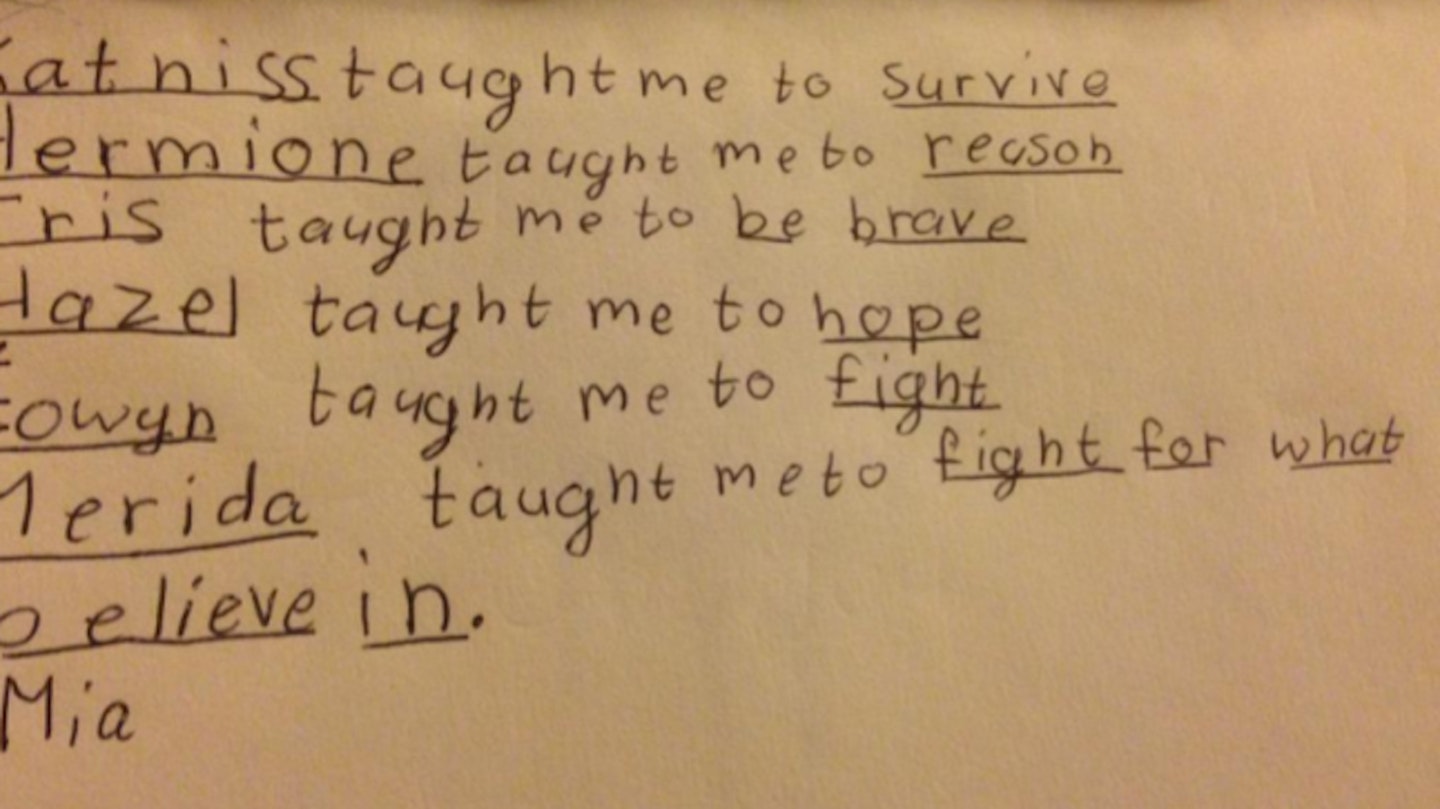 Katniss taught me to survive
Hermione taught me to reason
Tris taught me to be brave
Hazel taught me to hope
Eowyn taught me to fight
Merida taught me to fight for what
believe in.
Mia